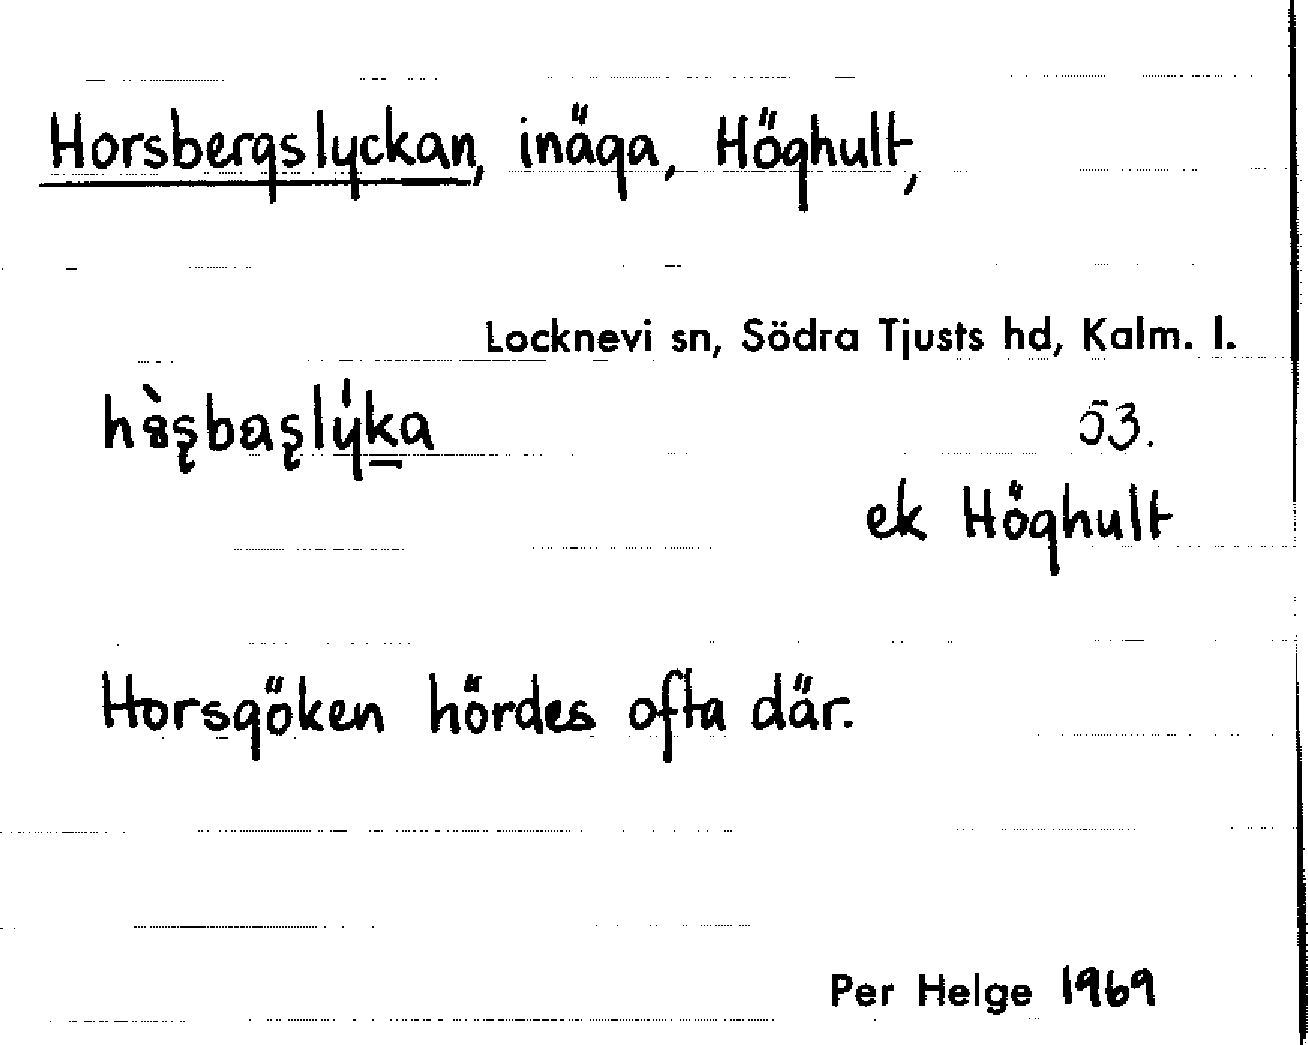 Horsbergslyckan, inäga, Höghult,
Locknevi sn, Södra Tjusts hd, Kalm. l.
53.
ek Höghult
Horsgöken hördes ofta där.
Per Helge 1969